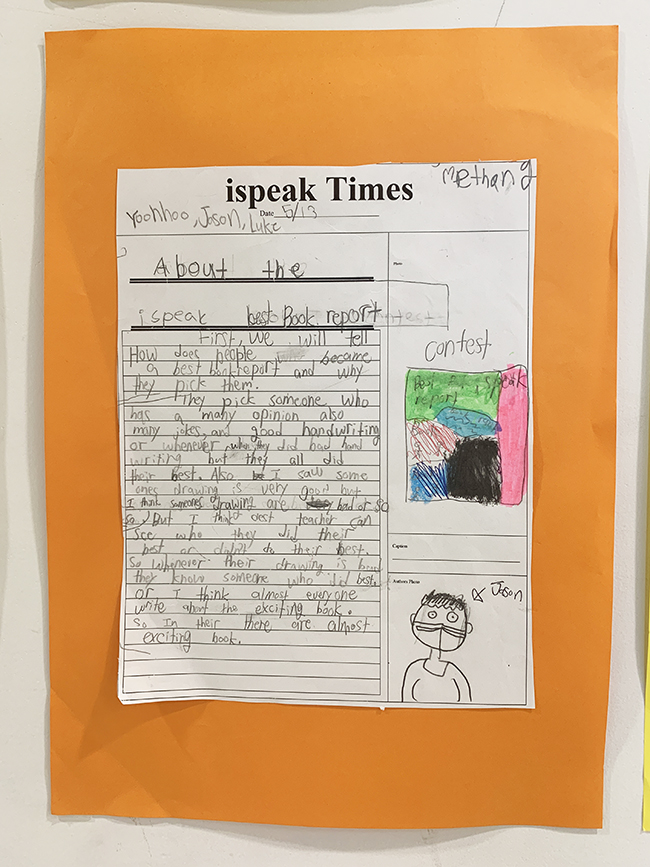 Methang
ispeak Times
Yoonhoo, Jason, Luke
Date 5/13
About the
ispeak best Book report
Photo
contest
Best ispeak
report
First, we will tell
How does people became
a best bookreport and why
they pick them.
They pick someone who
has a many opinion also
many jokes, and good handwriting
or whenever, when they did bad hand
writing but they all did
their best. Also I saw some
ones drawing is very good but
I think someones drawing are bad or so
so. But I think best teacher can
see who they did their
best or didn't do their best.
So whenever their drawing is bad
they know someone who did best.
or, I think almost everyone
write about the exciting book.
So In their there are almost
exciting book.
Caption
Authors Photo
Jason